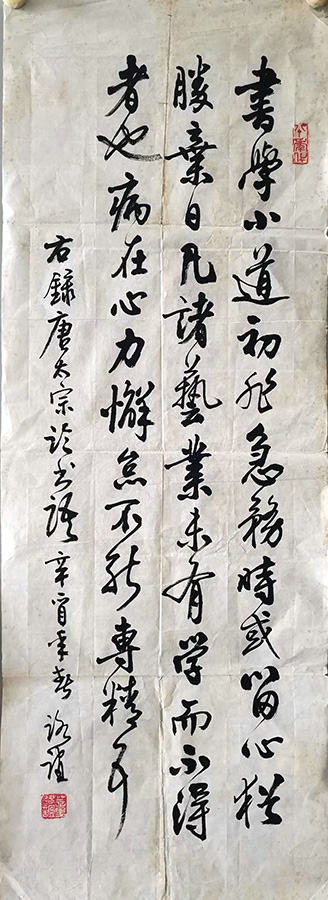 書學小道初非急務時或留心猶
勝棄日凡諸藝業未有学而不得
者也病在心力懈怠不能專精耳
右録唐太宗论书语辛酉年春